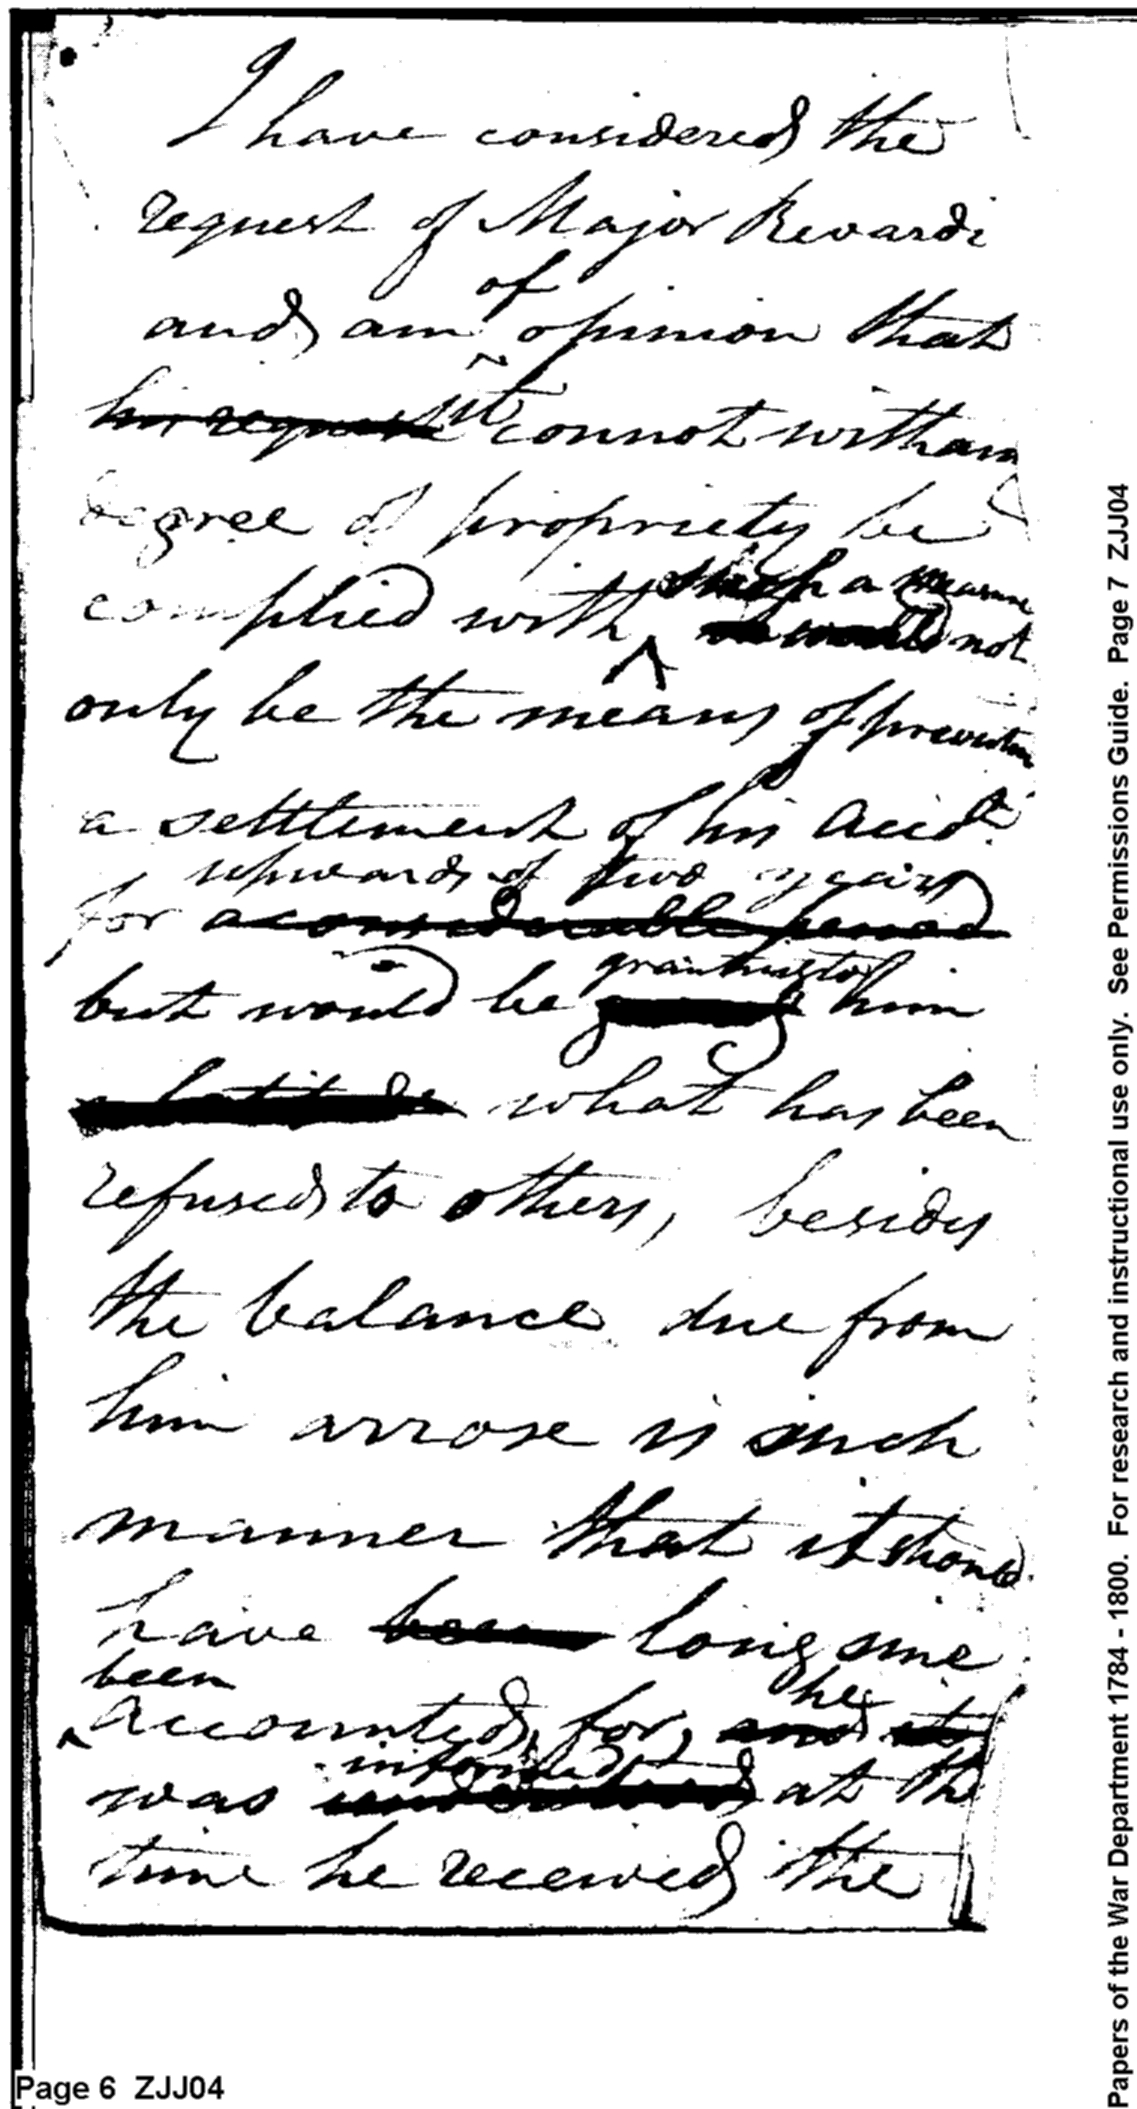 I have considered the
request of Major Rivardi
of
and am opinion that
his request it cannot with any
degree of propriety be
such a measure
complied with, would not
only be the means of preventing
a settlement of his Acct.
upwards of two years
for a considerable period
granting to
but would be him
a latitude what has been
refused to others, besides
the balance due from
him arrose is such
manner that it should
have been long sinc
been
he
accounted, for, and it
informed
was understood at the
time he received the
Page 6 ZJJ04
Papers of the War Department 1784 - 1800. For research and instructional use only. See Permissions Guide. Page 7 ZJJ04